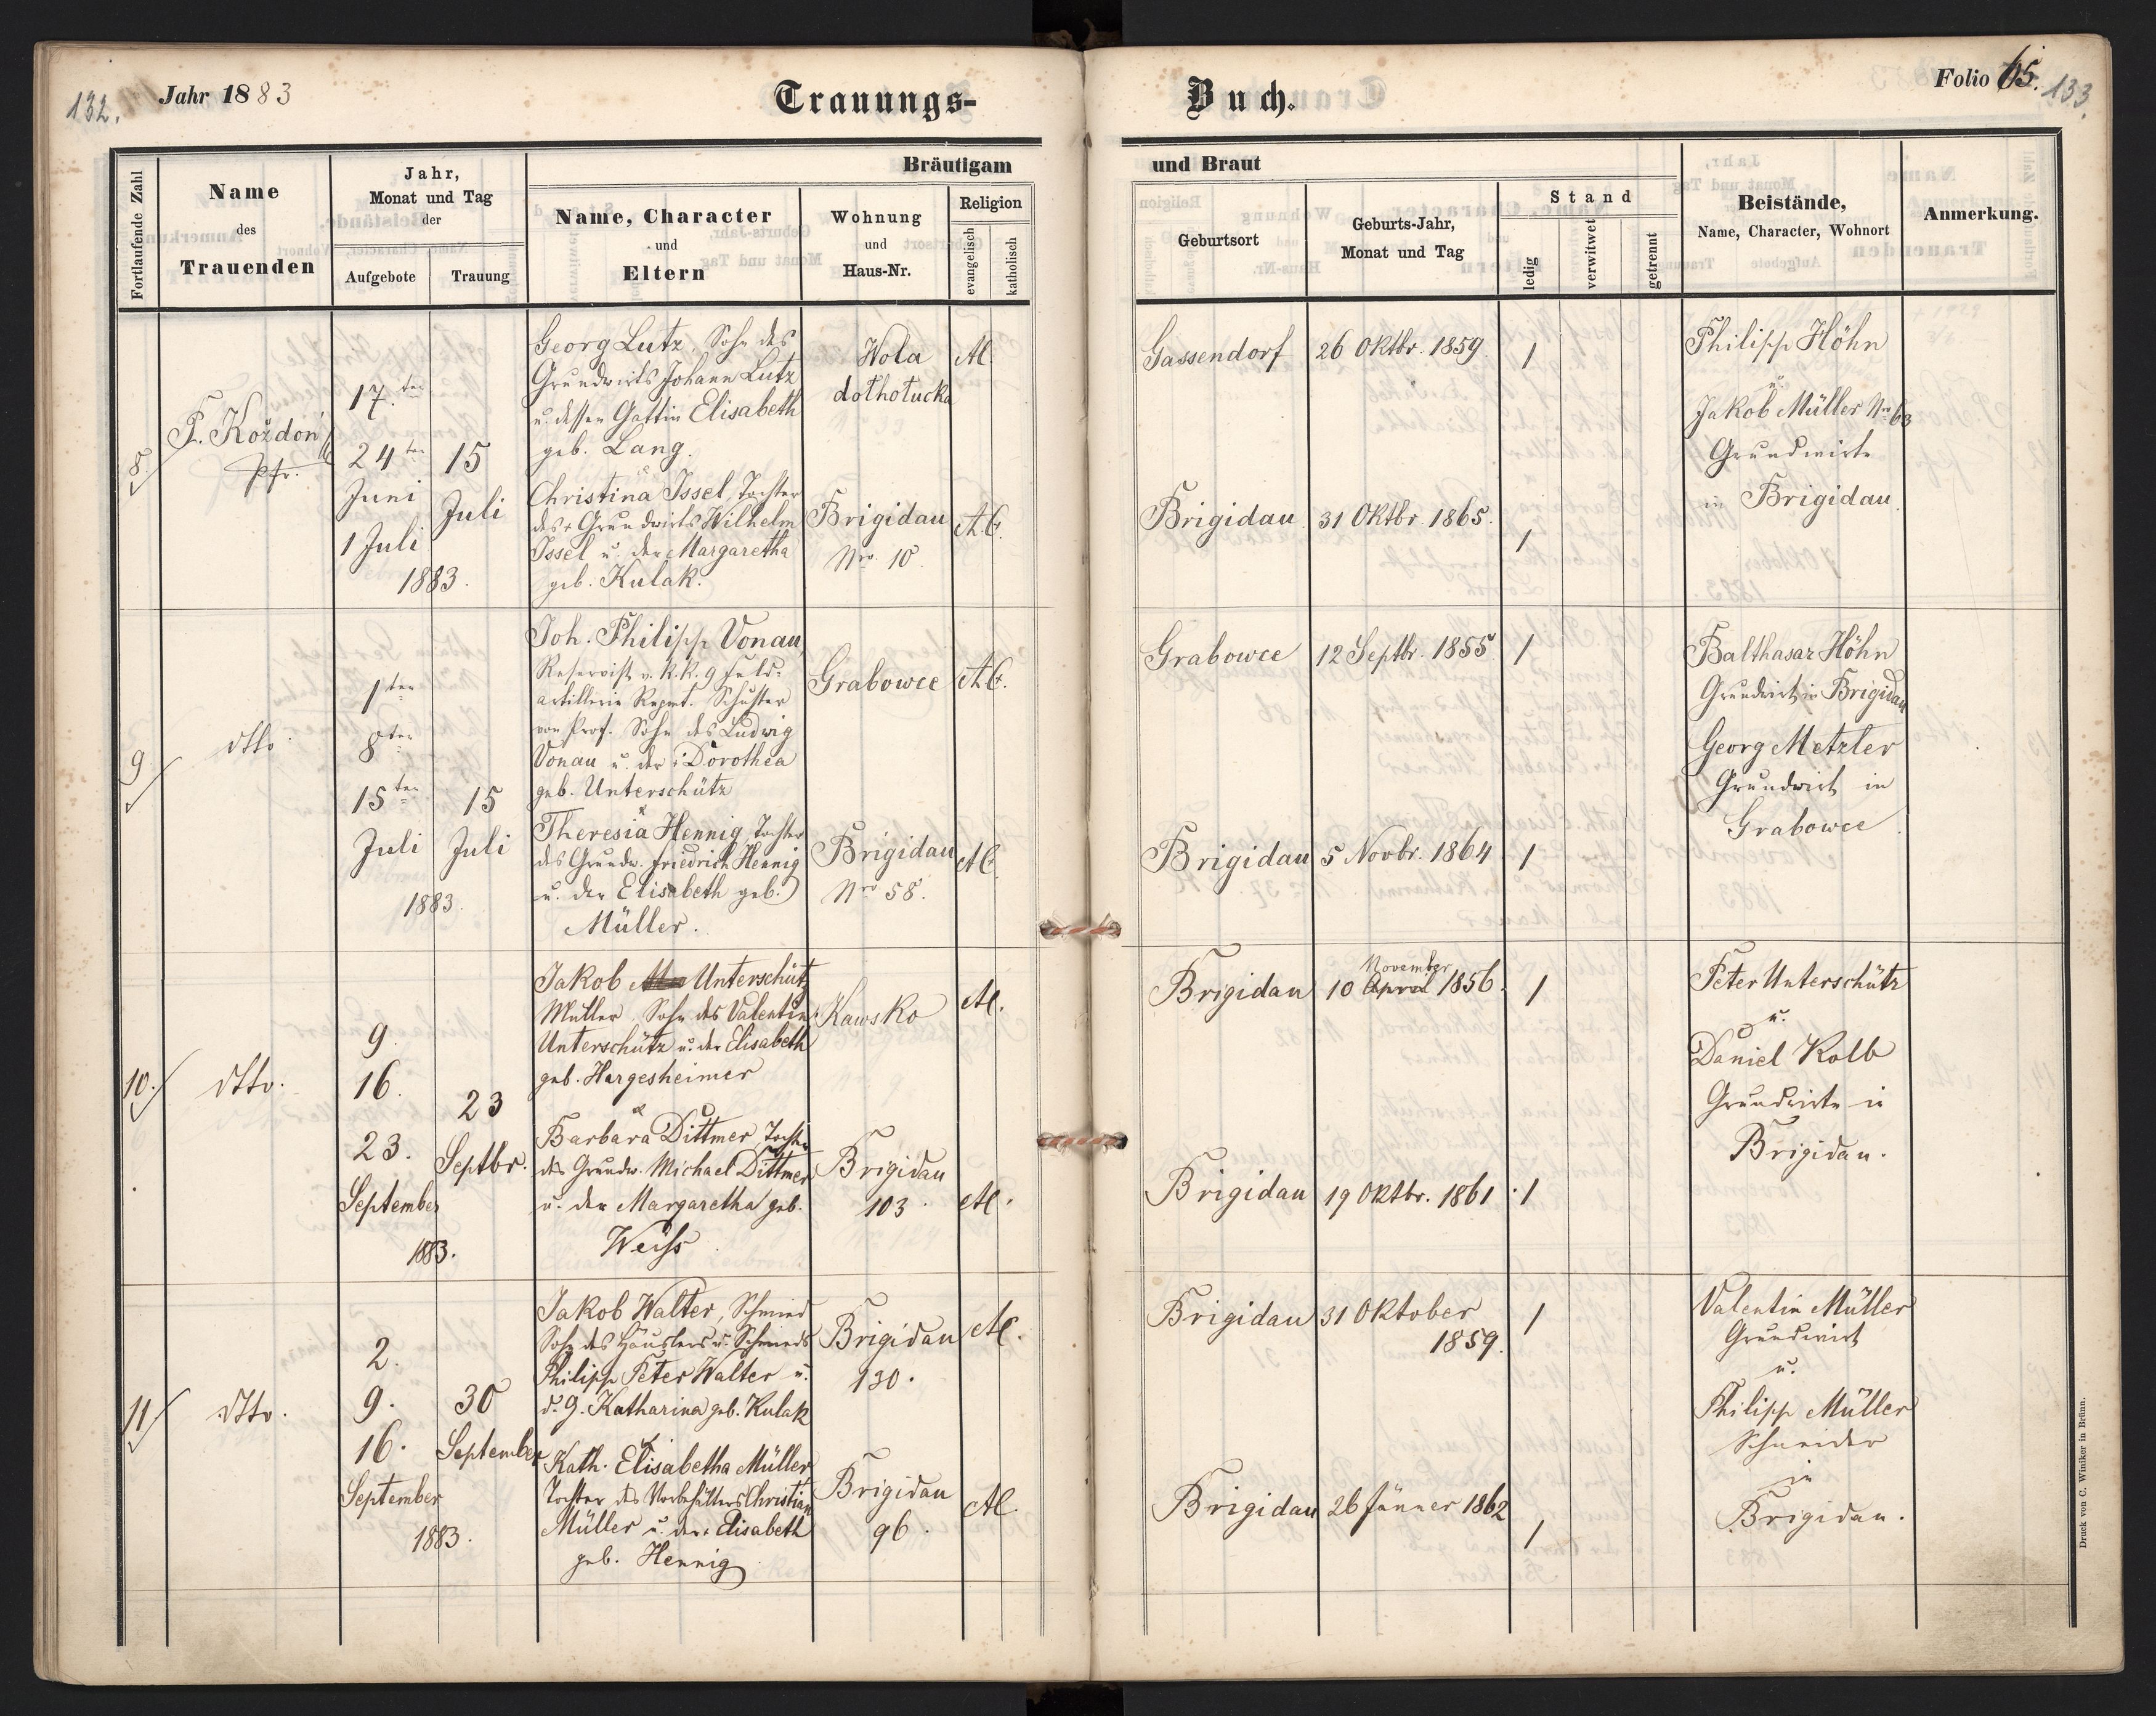 132.
Jahr 1883
Trauungs-
Fortlaufende Zahl
Name
des
Trauenden
Jahr,
Monat und Tag
der
Aufgebote
Trauung
Bräutigam
Name, Character
und
Eltern
Wohnung
und
Haus-Nr.
Religion
evangelisch
katholisch
8.
F. Koždoń
Pfr.
17.ten
24ten
Juni
1 Juli
15
Juli
1883.
Georg Lutz, Sohn des
Grundwirts Johann Lutz
u. dessen Gattin Elisabeth
geb. Lang.
u.
Christina Issel, Tochter
des + Grundwirts Wilhelm
Issel u. der Margaretha
geb. Kulak.
Wola
dołhołucka
Brigidau
Nro. 10.
AC.
A.C.
9
dtto.
1ten
8ten
15ten
Juli
15
Juli
1883.
Joh. Philipp Vonau,
Reservist v. k. k. 9 Feld-
artillerie Regmt. Schuster
von Prof. Sohn des Ludwig
Vonau u. der Dorothea
geb. Unterschütz
u.
Theresia Hennig, Tochter
des Grundw. Friedrich Hennig
u. der Elisabeth geb.
Müller.
Grabowce
Brigidau
Nro 58.
A.C.
AC.
10.
dtto.
9.
16.
23.
September
23
Septbr.
1883.
Jakob Unterschütz
Müller, Sohn des Valentin
Unterschütz u. der Elisabeth
geb. Hargesheimer
u.
Barbara Dittmer, Tochter
des Grundw. Michael Dittmer
u. der Margaretha geb.
Weiss
Kawsko
Brigidau
103.
AC.
AC.
11
dtto.
2.
9.
16.
September
30
September
1883.
Jakob Walter, Schmied
Sohn des Häuslers u. Schmieds
Philipp Peter Walter u.
d. G. Katharina geb. Kulak
u.
Kath. Elisabetha Müller
Tochter des Vorbehälters Christian
Müller u. der Elisabeth
geb. Hennig
Brigidau
130.
Brigidau
96.
AC.
AC.
Buch.
Folio 65.
133.
und Braut
Geburtsort
Geburts-Jahr,
Monat und Tag
Stand
ledig
verwitwet
getrennt
Beistände,
Name, Character, Wohnort
Anmerkung.
Gassendorf
26 Oktbr. 1859
1
Brigidau
31 Oktbr. 1865.
1
Philipp Höhn
u.
Jakob Müller Nr. 63
Grundwirte
in Brigidau.
Grabowce
12 Septbr. 1855
1
Brigidau
5 Novbr. 1864
1
Balthasar Höhn
Grundwirt in Brigidau
Georg Metzler
Grundwirt in
Grabowce
Brigidau
November
10 April 1856.
1
Brigidau
19 Oktbr. 1861
1
Peter Unterschütz
u.
Daniel Kolb
Grundwirte in
Brigidau.
Brigidau
31 Oktober
1859.
1
Brigidau
26 Jänner 1862
1
Valentin Müller
Grundwirt
u.
Philipp Müller
Schneider
in
Brigidau.
Druck von C. Winiker in Brünn.